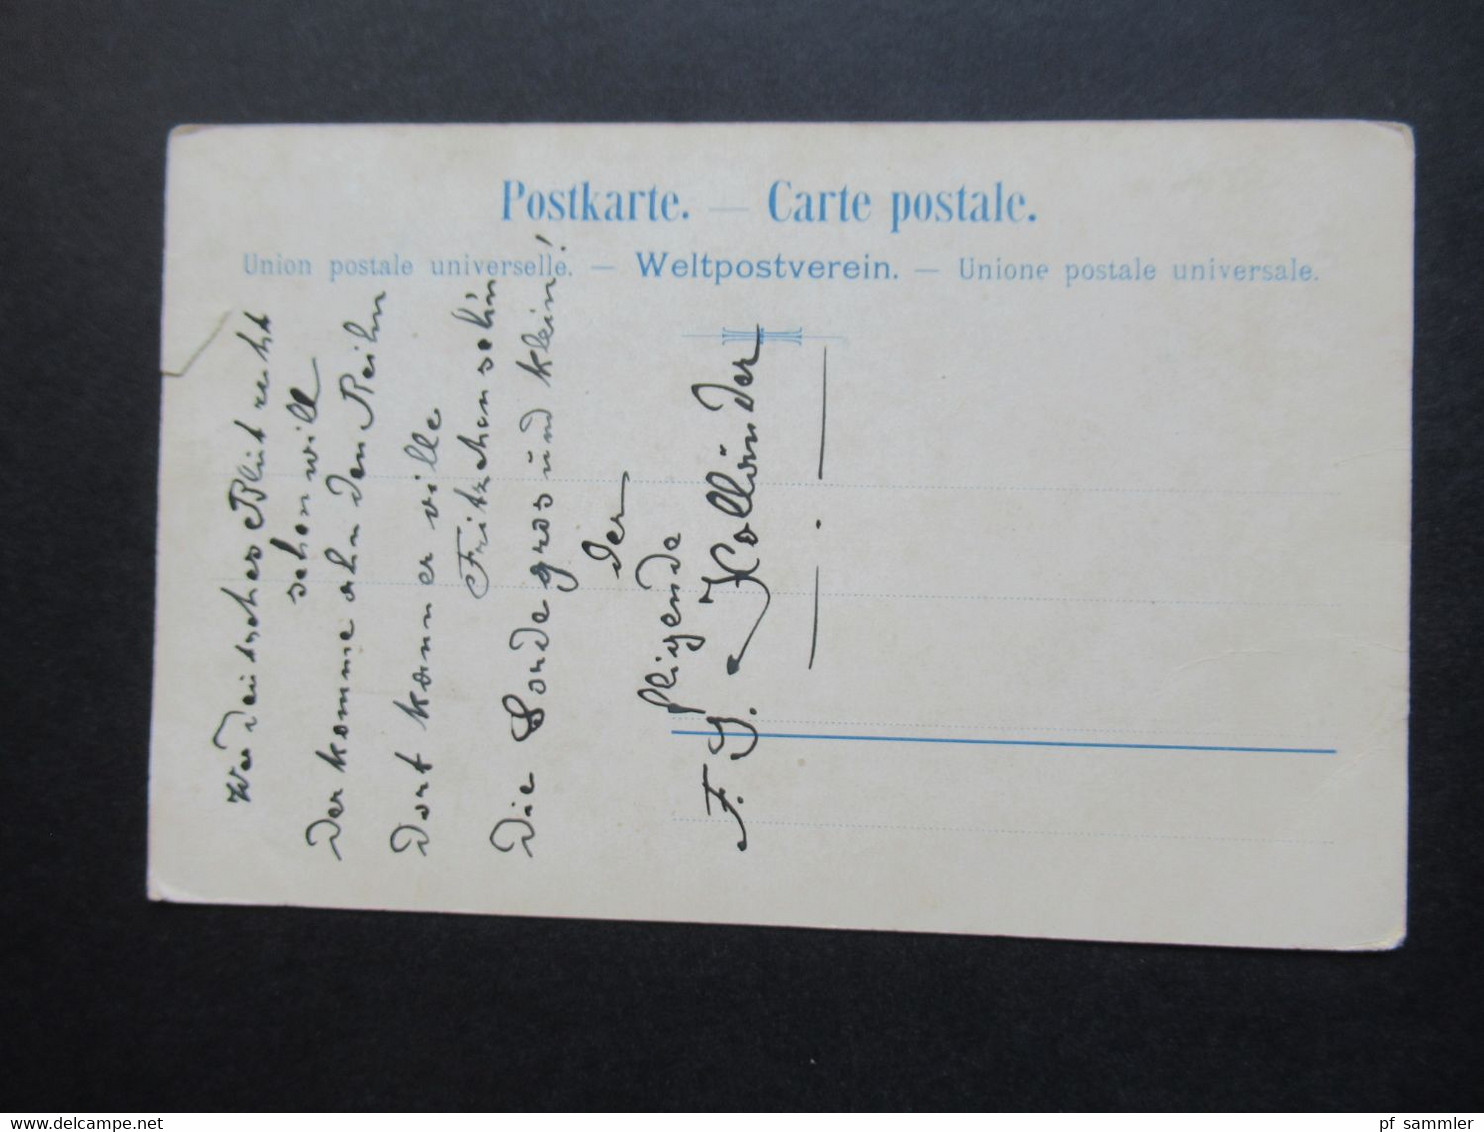 Postkarte. — Carte postale.
Union postale universelle. — Weltpostverein. — Unione postale universale.
Wer deutsches Blut recht
sehen will
Der komme ahn den Reihn
Dort kann er ville
Fritzchen seh'n
Die Sorde gros und klein!
der
fligende
F. G. Holländer
www.delcampe.net
pf_sammler